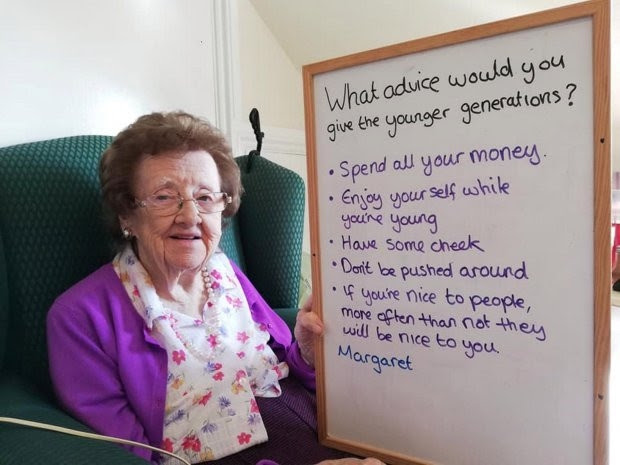 What advice would you
give the younger generations?
• Spend all your money.
• Enjoy your self while
you're young
• Have some cheek
• Don't be pushed around
• If you're nice to people,
more often than not they
will be nice to you.
Margaret